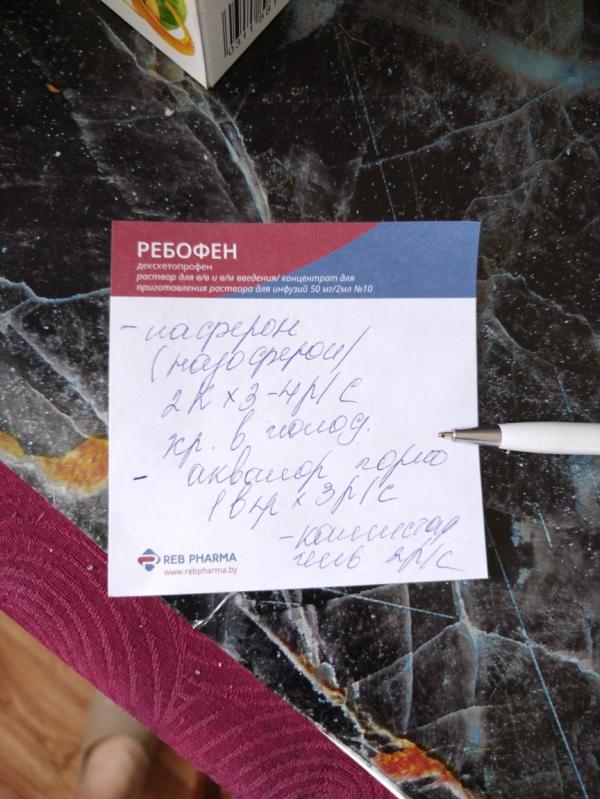 РЕБОФЕН
декскетопрофен
раствор для в/в и в/м введения/ концентрат для
приготовления раствора для инфузий 50 мг/2мл №10
- насферон
(назоферон)
2к х 3-4р/с
хр. в холод.
- аквалор горло
1впр х 3р/с
- камистад
гель 2р/с
REB PHARMA
www.rebpharma.by